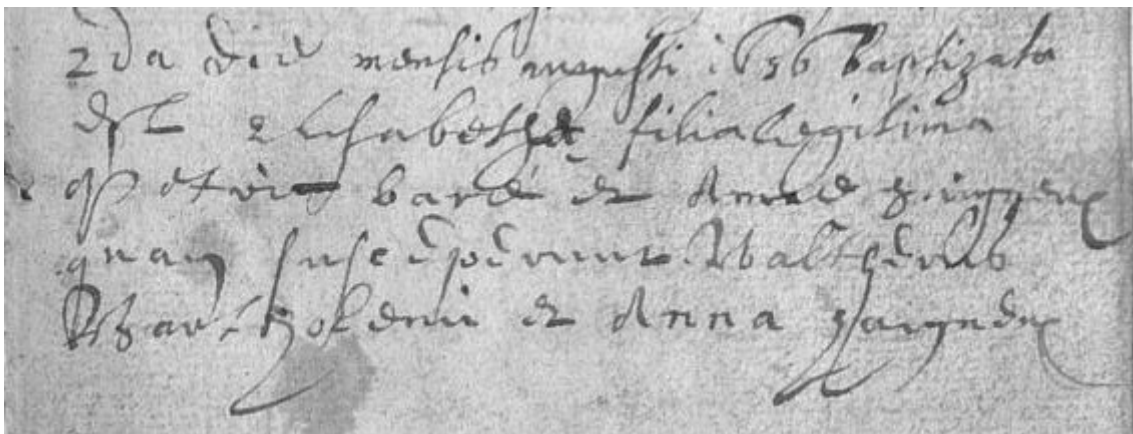 2da die mensis augusti 1656 baptizata
est Elisabetha filia legitima
petri baré et Anne
quam susceperunt Waltherus
Bartholemi et Anna